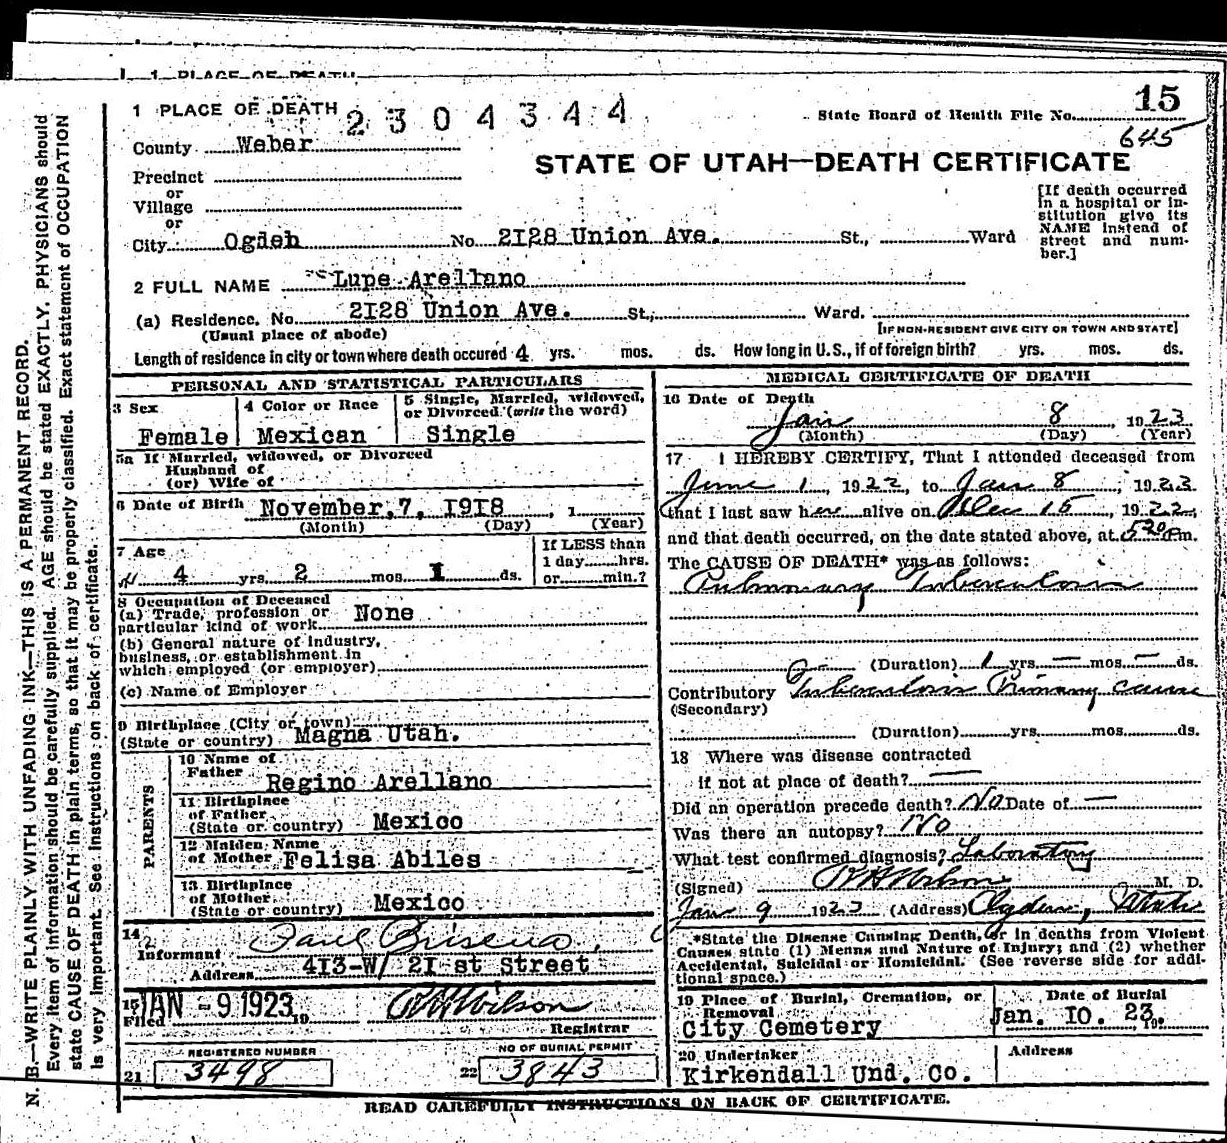 1 PLACE OF DEATH
15
1 PLACE OF DEATH
2304344
State Board of Health File No.
645
County Weber
STATE OF UTAH—DEATH CERTIFICATE
Precinct
or
Village
or
City Ogdeh No. 2I28 Union Ave. St., Ward
[If death occurred in a hospital or in-
stitution give its
NAME instead of
street and num-
ber.]
2 FULL NAME Lupe Arellano
(a) Residence. No. 2I28 Union Ave. St., Ward.
(Usual place of abode)
[IF NON-RESIDENT GIVE CITY OR TOWN AND STATE]
Length of residence in city or town where death occured 4 yrs. mos. ds. How long in U.S., if of foreign birth? yrs. mos. ds.
PERSONAL AND STATISTICAL PARTICULARS
3 Sex
Female
4 Color or Race
Mexican
5 Single, Married, widowed,
or Divorced (write the word)
Single
5a If Married, widowed, or Divorced
Husband of
(or) Wife of
6 Date of Birth November, 7, I9I8, 1
(Month) (Day) (Year)
7 Age
4 yrs. 2 mos. 1 ds.
If LESS than
1 day hrs.
or min.?
8 Occupation of Deceased
(a) Trade, profession or
particular kind of work None
(b) General nature of industry,
business, or establishment in
which employed (or employer)
(c) Name of Employer
9 Birthplace (City or town)
(State or country) Magna Utah.
PARENTS
10 Name of
Father Regino Arellano
11 Birthplace
of Father
(State or country) Mexico
12 Maiden Name
of Mother Felisa Abiles
13 Birthplace
of Mother
(State or country) Mexico
14
Informant Paul Brisena
Address 4I3-W/ 2I-st Street
15
Filed JAN -9 1923 19
RH Wilson
Registrar
REGISTERED NUMBER
21 3498
NO OF BURIAL PERMIT
22 3843
MEDICAL CERTIFICATE OF DEATH
16 Date of Death
Jan 8, 1923
(Month) (Day) (Year)
17 I HEREBY CERTIFY, That I attended deceased from
June 1, 1922, to Jan 8, 1923
that I last saw her alive on Dec 15, 1922,
and that death occurred, on the date stated above, at 530 Pm.
The CAUSE OF DEATH* was as follows:
Pulmonary Tuberculosis
(Duration) 1 yrs. — mos. — ds.
Contributory Tuberculosis Primary cause
(Secondary)
(Duration) yrs. mos. ds.
18 Where was disease contracted
if not at place of death? —
Did an operation precede death? No Date of —
Was there an autopsy? No
What test confirmed diagnosis? Laboratory
(Signed) RH Wilson M. D.
Jan 9 1923 (Address) Ogden, Utah
*State the Disease Causing Death, or in deaths from Violent
Causes state (1) Means and Nature of Injury; and (2) whether
Accidental, Suicidal or Homicidal. (See reverse side for addi-
tional space.)
19 Place of Burial, Cremation, or
Removal
City Cemetery
Date of Burial
Jan. IO. 23. 19
20 Undertaker
Kirkendall Und. Co.
Address
READ CAREFULLY INSTRUCTIONS ON BACK OF CERTIFICATE.
N. B.—WRITE PLAINLY WITH UNFADING INK—THIS IS A PERMANENT RECORD.
Every item of information should be carefully supplied. AGE should be stated EXACTLY. PHYSICIANS should
state CAUSE OF DEATH in plain terms, so that it may be properly classified. Exact statement of OCCUPATION
is very important. See instructions on back of certificate.